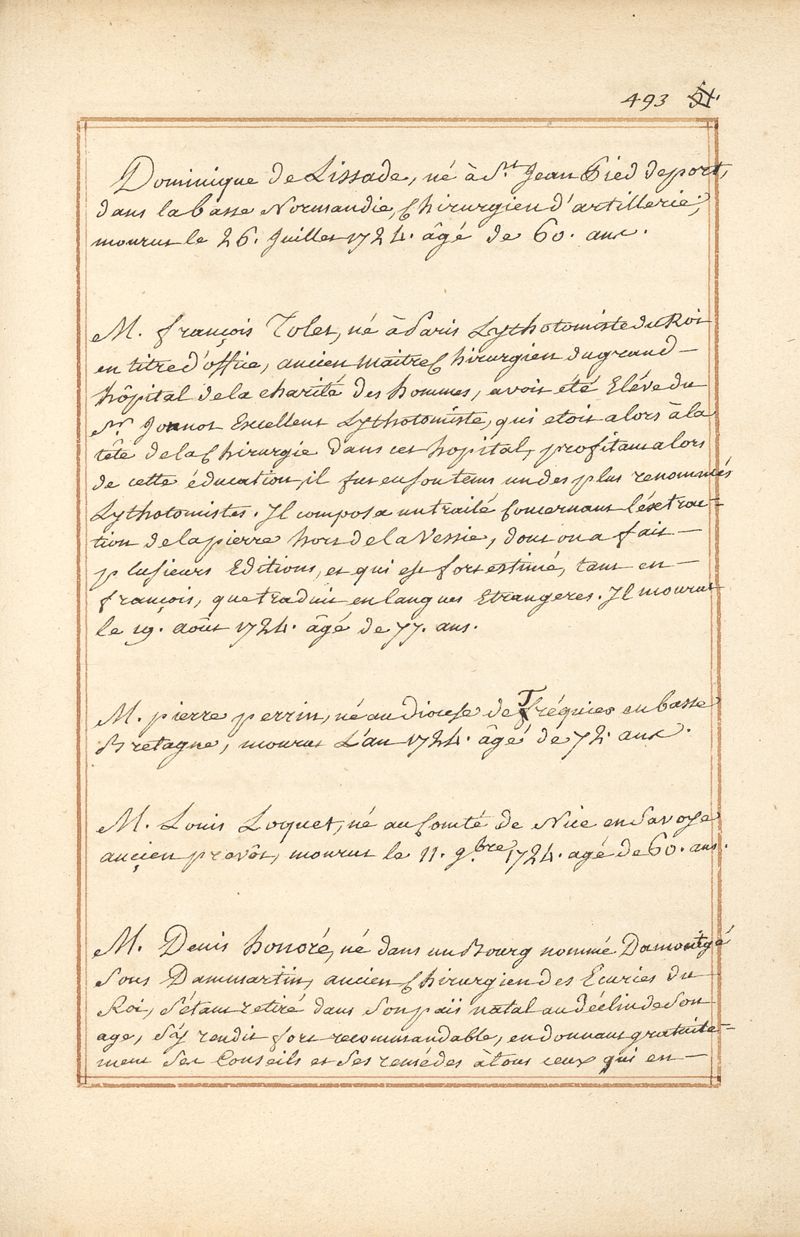 493 51.
Dominique de Lissade, né à St. Jean Pied deport,
dans la basse Normandie, Chirurgien d'artillerie,
mourut le 26. Juillet 1724. âgé de 60. ans.
M. françois Tolet, né à Paris Lythotomiste du Roi
en titre d'office, ancien maitre Chirurgien du grand —
hôpital de la charité des hommes, avoit été Elève du
Sr. Jonnot Excellent Lythotomiste, qui etoit alors à la
tête de la Chirurgie dans cet hopital, profitant alors
de cette éducation, il fut en son tems un des plus renommés
Lythotomistes. Il composa un traité Concernant l'éxtrac=
tion de la pierre hors de la Vessie, dont on a fait —
plusieurs Editions, et qui est fort estimé, tant en —
françois, que traduit en langues Etrangeres. Il mourut
le 19. août 1724. âgé de 77. ans.
M. pierre perrin, né au Diocese de Tréquier en basse
Bretagne, mourut L'an 1724. âgé de 72. ans.
M. Louis Loquet, né au Comté de Nice en Savoye
ançien prevôt, mourut le 11. 9.bre 1724. agé de 60. ans.
M. Denis honoré, né dans un Bourg nommé Damontgé
Sous Dammartin, ancien Chirurgien des Ecuries du
Roi, s'étant retiré dans son païs natal au Déclin de Son
age, s'y rendit fort recommandable, en donnant gratuite=
ment Ses Conseils et Ses remédes à tous ceux qui en —